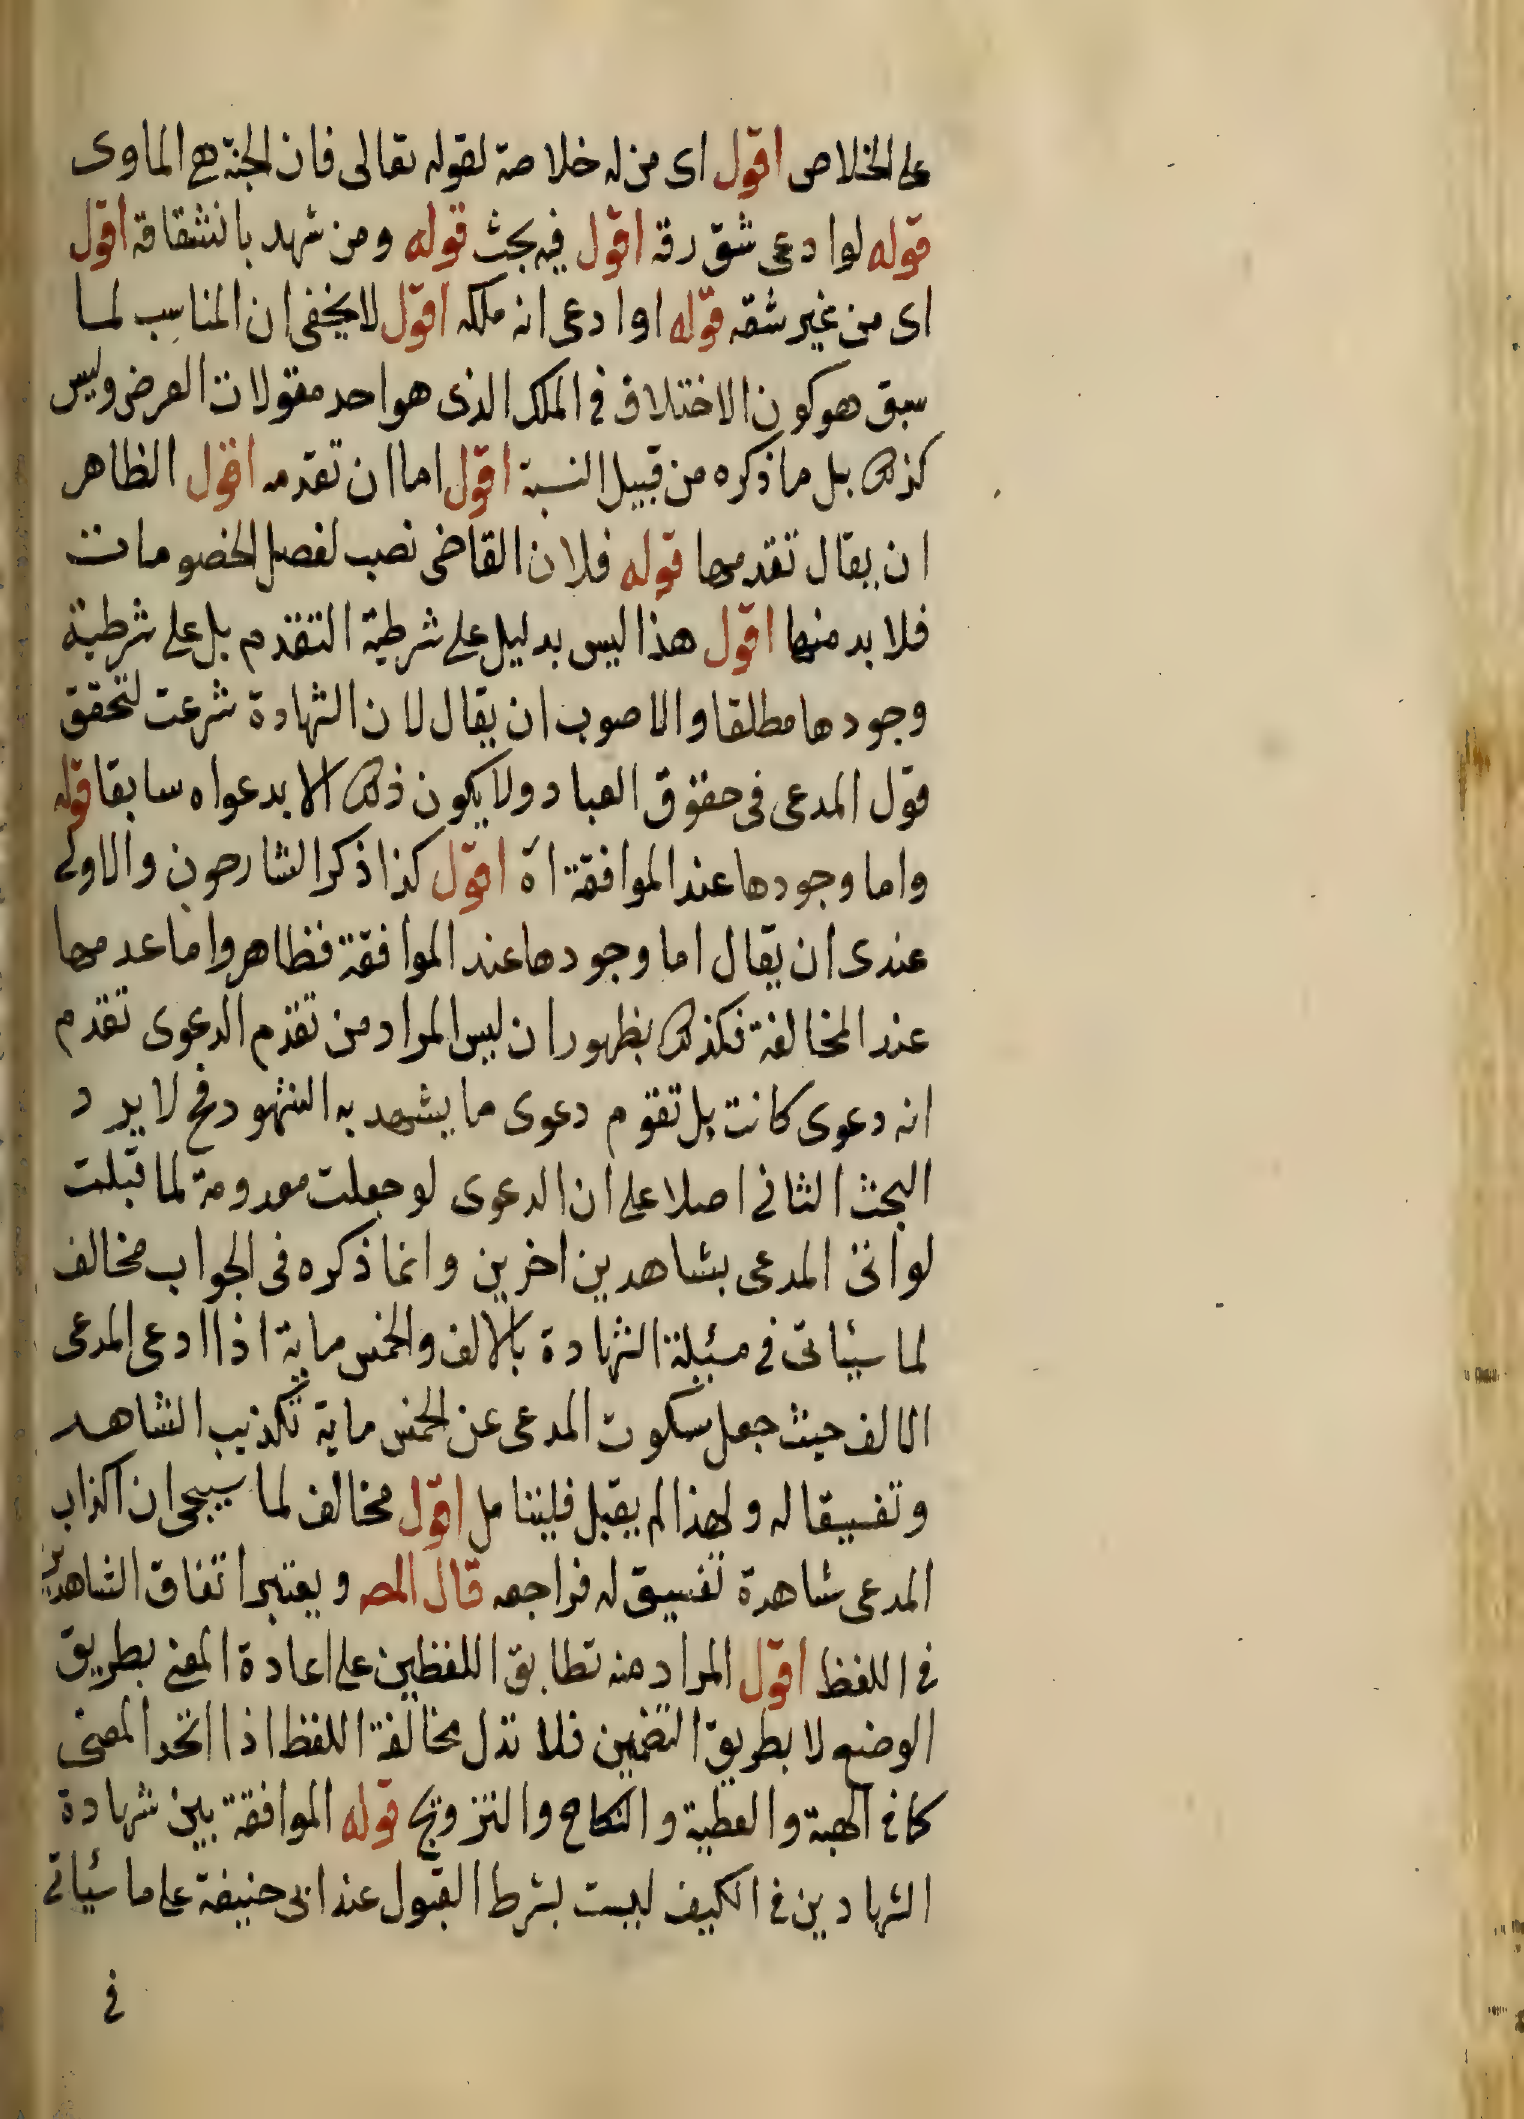 على الخلاص اقول اى من له خلاصة لقوله تعالى فان الجنة هى الماوى
قوله لو ادعى شق رقه اقول فيه بحث قوله ومن شهد بانشقاقة اقول
اى من غير شقه قوله او ادعى انه ملكه اقول لا يخفى ان المناسب لما
سبق هو كون الاختلاف فى الملك الذى هو احد مقولات العرض وليس
كذلك بل ما ذكره من قبيل النسبة اقول اما ان تقدمه اقول الظاهر
ان يقال تقدمها قوله فلان القاضى نصب لفصل الخصومات
فلا بد منها اقول هذا ليس بدليل على شرطية التقدم بل على شرطية
وجودها مطلقا والاصوب ان يقال لان الشهادة شرعت لتحقق
قول المدعى فى حقوق العباد ولا يكون ذلك الا بدعواه سابقا قوله
واما وجودها عند الموافقة اه اقول كذا ذكر الشارحون والاولى
عندى ان يقال اما وجودها عند الموافقة فظاهر واما عدمها
عند المخالفة فكذلك بظهور ان ليس المراد من تقدم الدعوى تقدم
انه دعوى كانت بل تقوم دعوى ما يشهد به الشهود فح لا يرد
البحث الثانى اصلا على ان الدعوى لو جعلت معدومة لما قبلت
لو اتى المدعى بشاهدين اخرين وانما ذكره فى الجواب مخالف
لما سيأتى فى مسئلة الشهادة بالالف والخمس ماية اذا ادعى المدعى
الالف حيث جعل سكوت المدعى عن الخمس ماية تكذيب الشاهد
وتفسيقا له ولهذا لم يقبل فليتامل اقول مخالف لما سيجى ان اكذاب
المدعى شاهدة تفسيق له فراجعه قال المص ويعتبر اتفاق الشاهدين
فى اللفظ اقول المراد منه تطابق اللفظين على اعادة المعنى بطريق
الوضع لا بطريق التضمين فلا تدل مخالفة اللفظ اذا اتحد المعنى
كما فى الهبة والعطية والنكاح والتزويج قوله الموافقة بين شهادة
الشهادين فى الكيف ليست بشرط القبول عند ابى حنيفة على ما سيأتى
فى